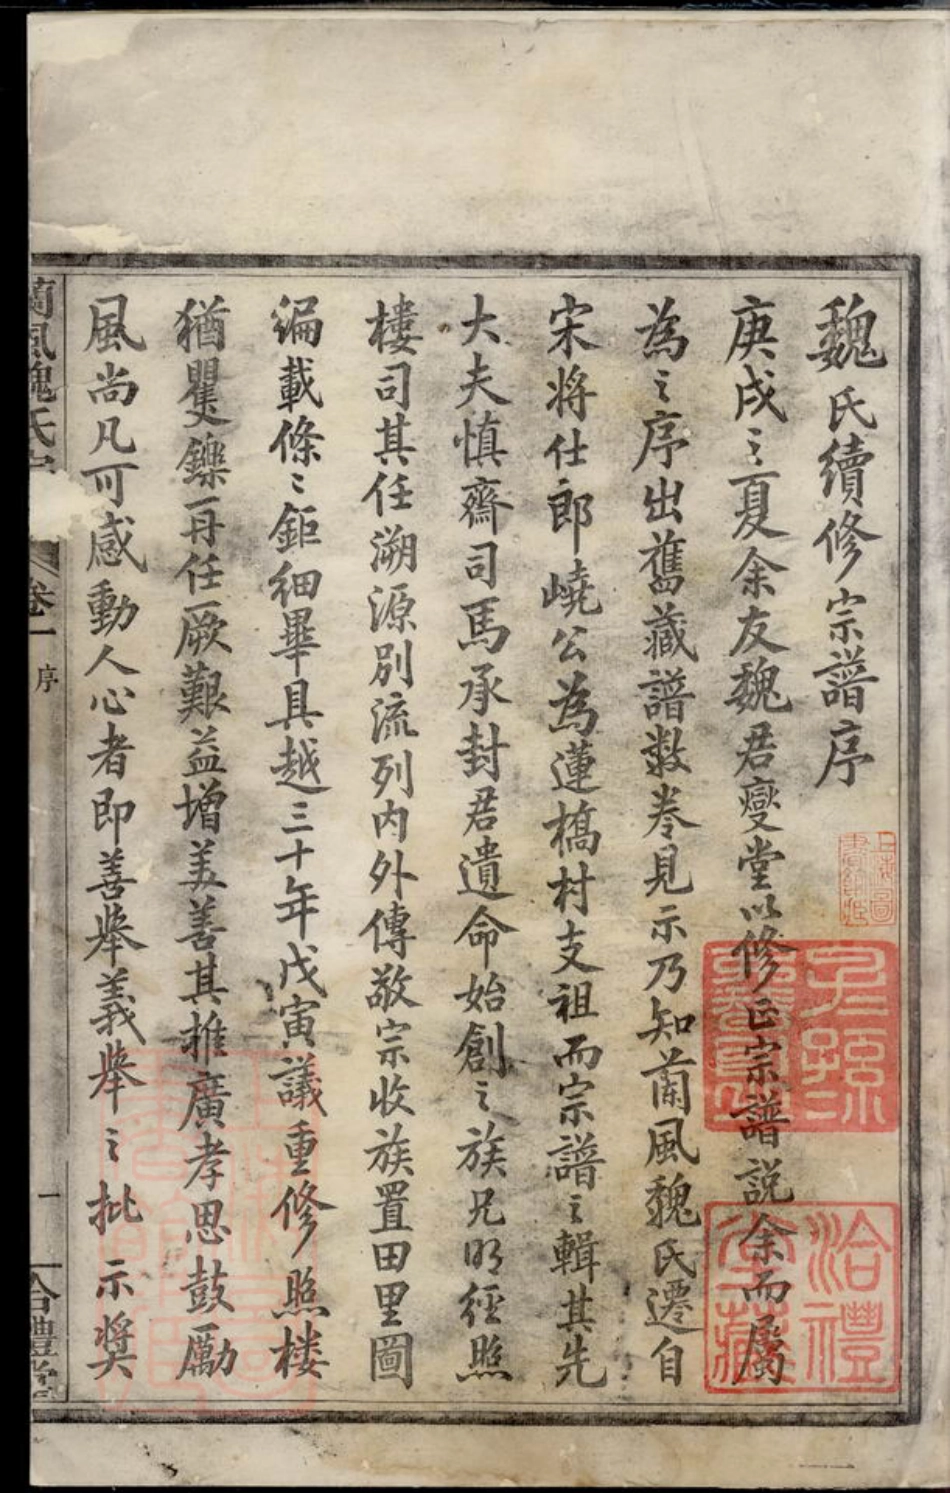 魏氏續修宗譜序
庚戌之夏余友魏君燮堂以修正宗譜説余而屬
為之序出舊藏譜數卷見示乃知蘭風魏氏遷自
宋将仕郎嶢公為蓮橋村支祖而宗譜之輯其先
大夫慎齋司馬承封君遺命始創之族兄明經照
樓司其任溯源別流列內外傳敬宗收族置田里圖
編載條〻鉅細畢具越三十年戊寅議重修照楼
猶矍鑠再任厥艱益增美善其推廣孝思鼓勵
風尚凡可感動人心者即善舉義舉之批示獎
蘭風魏氏宗
卷一 序
一
合禮堂
子孫
洽禮
堂藏